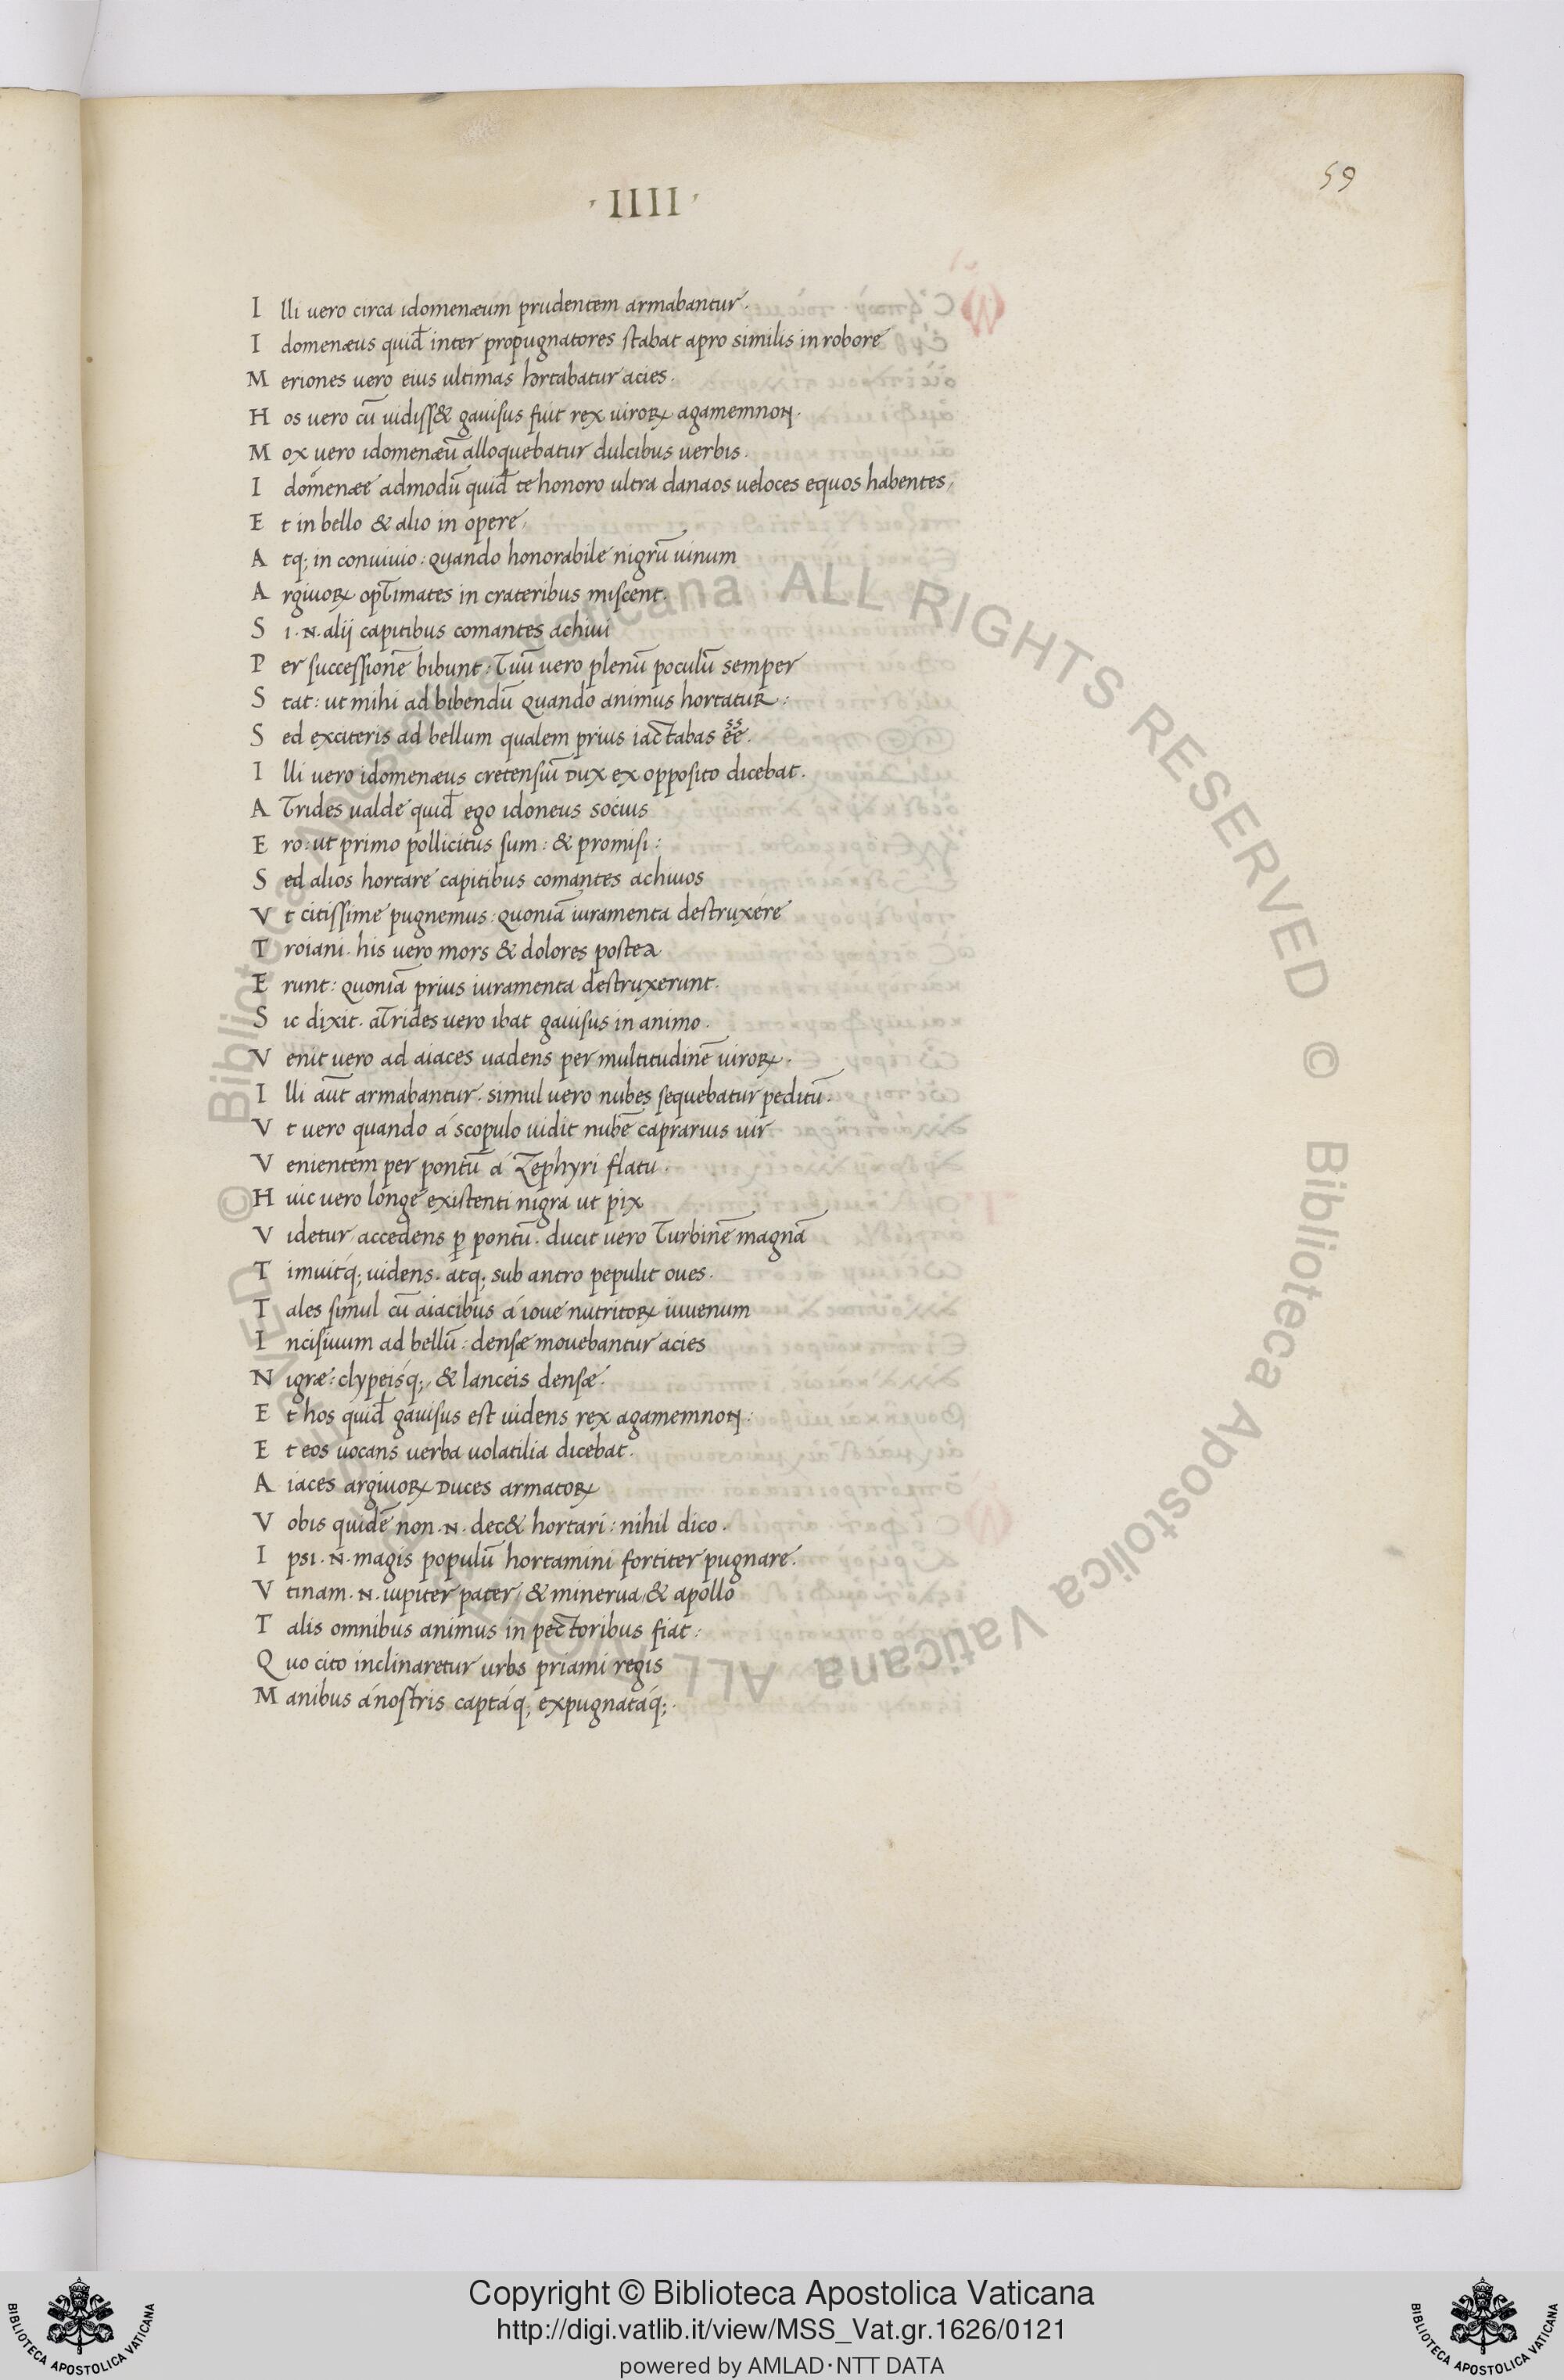 59
· IIII ·
I lli uero circa idomenæum prudentem armabantur.
I domenæus quid̄ inter propugnatores stabat apro similis in robore
M eriones uero eius ultimas hortabatur acies.
H os uero cū uidiss& gauisus fuit rex uiroꝝ agamemnon.
M ox uero idomenæū alloquebatur dulcibus uerbis.
I domenæe admodū quid̄ te honoro ultra danaos ueloces equos habentes.
E t in bello & alio in opere.
A tq; in conuiuio: quando honorabile nigrū uinum
A rgiuoꝝ optimates in crateribus miscent.
S i .N. alij capitibus comantes achiui
P er successionē bibunt: Tuū uero plenū poculū semper
S tat: ut mihi ad bibendū quando animus hortatur:
S ed exciteris ad bellum qualem prius iactabas ēē.
I lli uero idomenæus cretensiū dux ex opposito dicebat.
A Trides ualde quid̄ ego idoneus socius
E ro: ut primo pollicitus sum: & promisi:
S ed alios hortare capitibus comantes achiuos
V t citissime pugnemus: quoniā iuramenta destruxére
T roiani. his uero mors & dolores postea
E runt: quoniā prius iuramenta destruxerunt.
S ic dixit. aTrides uero ibat gauisus in animo.
V enit uero ad aiaces uadens per multitudinē uiroꝝ.
I lli aūt armabantur. simul uero nubes sequebatur peditū.
V t uero quando á scopulo uidit nubē caprarius uir
V enientem per pontū á Zephyri flatu.
H uic uero longe existenti nigra ut pix
V idetur accedens ꝑ pontū. ducit uero Turbinē magnā
T imuitq́; uidens. atq; sub antro pepulit oues.
T ales simul cū aiacibus á ioue nutritoꝝ iuuenum
I ncisiuum ad bellū: densæ mouebantur acies
N igræ: clypeisq́; & lanceis densæ.
E t hos quid̄ gauisus est uidens rex agamemnon:
E t eos uocans uerba uolatilia dicebat.
A iaces argiuoꝝ duces armatoꝝ
V obis quidē non .N. dec& hortari: nihil dico.
I psi .N̄. magis populū hortamini fortiter pugnare.
V tinam .N. iupiter pater / & minerua / & apollo
T alis omnibus animus in pectoribus fiat:
Q uo cito inclinaretur urbs priami regis
M anibus á nostris captáq; expugnataq́;.
Copyright © Biblioteca Apostolica Vaticana
http://digi.vatlib.it/view/MSS_Vat.gr.1626/0121
powered by AMLAD·NTT DATA